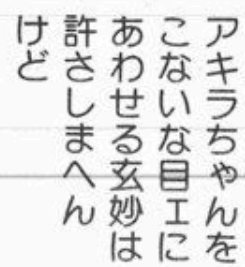 アキラちゃんを
こないな目エに
あわせる玄妙は
許さしまへん
けど